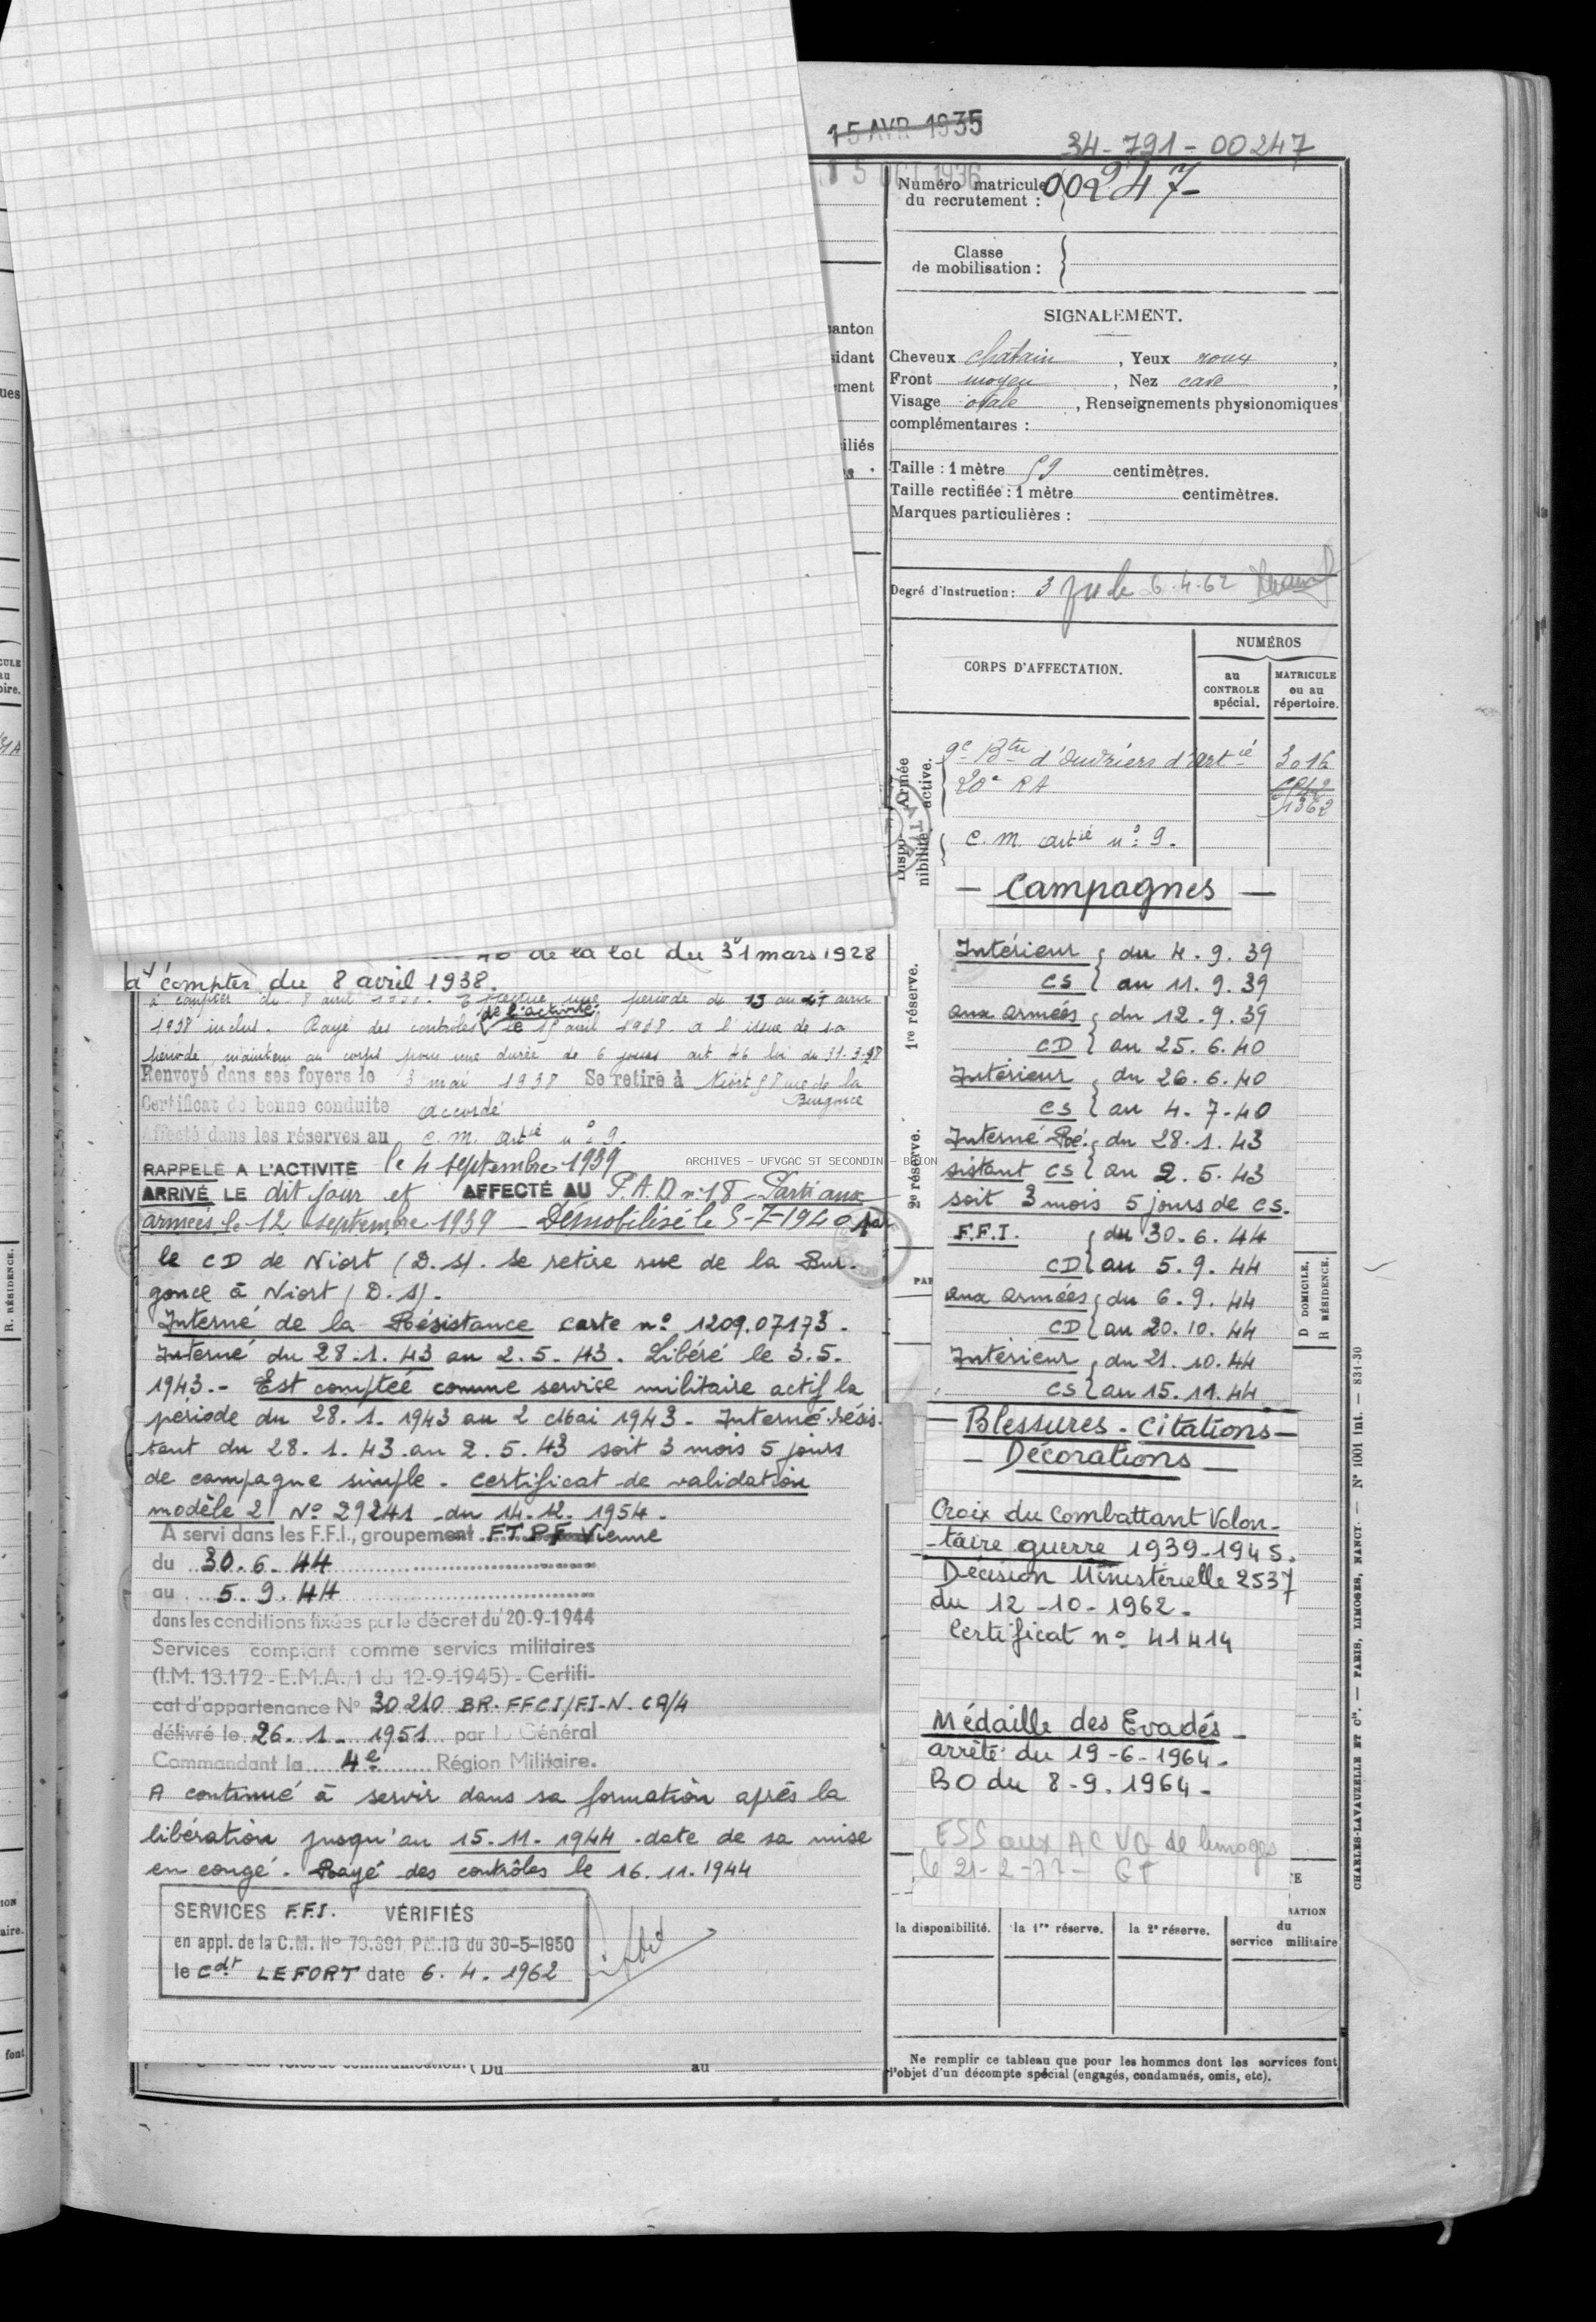 15 AVR 1935
34-791-00247
5 OCT 1936
Numéro matricule
du recrutement :
00247-
Classe
de mobilisation :
SIGNALEMENT.
Cheveux chatain, Yeux roux,
Front moyen, Nez cave,
Visage ovale, Renseignements physionomiques
complémentaires :
Taille : 1 mètre 59 centimètres.
Taille rectifiée : 1 mètre centimètres.
Marques particulières :
Degré d'instruction : 3 6-4-62
CORPS D'AFFECTATION.
NUMÉROS
au
CONTROLE
spécial.
MATRICULE
ou au
répertoire.
Armée
active.
9e Btie d'Ouvriers d'Artie 3016
20e RA
1362
Dispo-
nibilité.
C. M. artie n° 9.
1re réserve.
2e réserve.
— Campagnes —
Intérieur { du 4. 9. 39
CS { au 11. 9. 39
aux armées { du 12. 9. 39
CD { au 25. 6. 40
Intérieur { du 26. 6. 40
CS { au 4. 7. 40
Interné Ré- { du 28. 1. 43
sistant CS { au 2. 5. 43
soit 3 mois 5 jours de CS.
F.F.I. { du 30. 6. 44
CD { au 5. 9. 44
aux armées { du 6. 9. 44
CD { au 20. 10. 44
Intérieur { du 21. 10. 44
CS { au 15. 11. 44
— Blessures - Citations —
— Décorations —
Croix du Combattant Volon-
-taire guerre 1939-1945.
Décision Ministérielle 2537
du 12-10-1962-
Certificat n° 41414
Médaille des Evadés -
arrêté du 19-6-1964-
BO du 8-9.1964-
ESS aux AC VG de limoges
le 21-2-77- GT
la disponibilité.
la 1re réserve.
la 2e réserve.
du
service militaire
Ne remplir ce tableau que pour les hommes dont les services font
l'objet d'un décompte spécial (engagés, condamnés, omis, etc).
de la loi du 31 mars 1928
à compter du 8 avril 1938.
à compter du 8 avril Effectue une période du 15 au 27 avril
de l'activité
1938 inclus. Rayé des contrôles le 15 avril 1938. A l'issue de sa
période, maintenu au corps pour une durée de 6 jours art. 46 loi du 31-3-28
Renvoyé dans ses foyers le 3 mai 1938 Se retire à Niort 58 rue de la
Burgonce
Certificat de bonne conduite accordé
Affecté dans les réserves au C. M. artie n° 9.
RAPPELÉ A L'ACTIVITÉ le 4 septembre 1939
ARCHIVES - UFVGAC ST SECONDIN - BRION
ARRIVÉ LE dit jour et AFFECTÉ AU P.A.D n° 18 - Parti aux
armées le 12 septembre 1939 - Démobilisé le 5-7-1940 par
le CD de Niort (D.S). Se retire rue de la Bur-
gonce à Niort (D.S).
Interné de la Résistance carte n° 1209.07173-
Interné du 28.1.43 au 2.5.43. Libéré le 3.5.
1943.- Est comptée comme service militaire actif la
période du 28.1.1943 au 2 Mai 1943- Interné-résis-
tant du 28.1.43 au 2.5.43 soit 3 mois 5 jours
de campagne simple - certificat de validation
modèle 21 N° 29241 du 14.12.1954.
A servi dans les F.F.I., groupement F.T.P.F Vienne
du 30.6.44
au 5.9.44
dans les conditions fixées par le décret du 20-9-1944
Services comptant comme servics militaires
(I.M. 13.172-E.M.A./1 du 12-9-1945) - Certifi-
cat d'appartenance N° 30210 BR-FFCI/FI-N. CA/4
délivré le 26.1.1951 par le Général
Commandant la 4e Région Militaire.
A continué à servir dans sa formation après la
libération jusqu'au 15.11.1944 date de sa mise
en congé. Rayé des contrôles le 16.11.1944
SERVICES F.F.I. VÉRIFIÉS
en appl. de la C.M. N° 70.391 PM.1B du 30-5-1950
le Cdt LEFORT date 6.4.1962
Du au
D DOMICILE,
R RÉSIDENCE.
R. RÉSIDENCE.
CHARLES-LAVAUZELLE ET Cie. — PARIS, LIMOGES, NANCY. — N° 1001 int. — 831-30